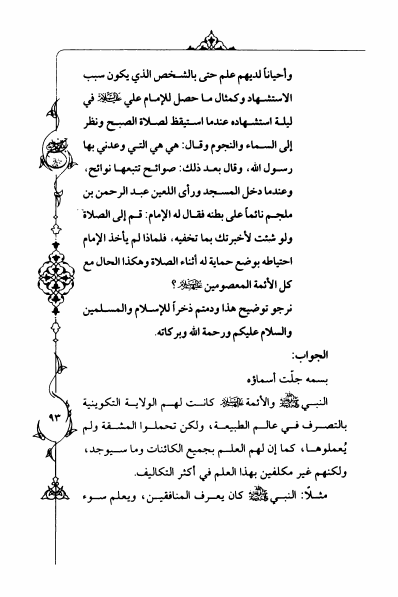 وأحياناً لديهم علم حتى بالشخص الذي يكون سبب
الاستشهاد وكمثال ما حصل للإمام علي عليه السلام في
ليلة استشهاده عندما استيقظ لصلاة الصبح ونظر
إلى السماء والنجوم وقال: هي هي التي وعدني بها
رسول الله، وقال بعد ذلك: صوائح تتبعها نوائح،
وعندما دخل المسجد ورأى اللعين عبد الرحمن بن
ملجم نائماً على بطنه فقال له الإمام: قم إلى الصلاة
ولو شئت لأخبرتك بما تخفيه، فلماذا لم يأخذ الإمام
احتياطه بوضع حماية له أثناء الصلاة وهكذا الحال مع
كل الأئمة المعصومين ؟
نرجو توضيح هذا ودمتم ذخراً للإسلام والمسلمين
والسلام عليكم ورحمة الله وبركاته.
الجواب:
بسمه جلّت أسماؤه
النبي والأئمة كانت لهم الولاية التكوينية
بالتصرف في عالم الطبيعة، ولكن تحملوا المشقة ولم
يُعملوها، كما إن لهم العلم بجميع الكائنات وما سيوجد،
ولكنهم غير مكلفين بهذا العلم في أكثر التكاليف.
مثلاً: النبي كان يعرف المنافقين، ويعلم سوء
٩٣